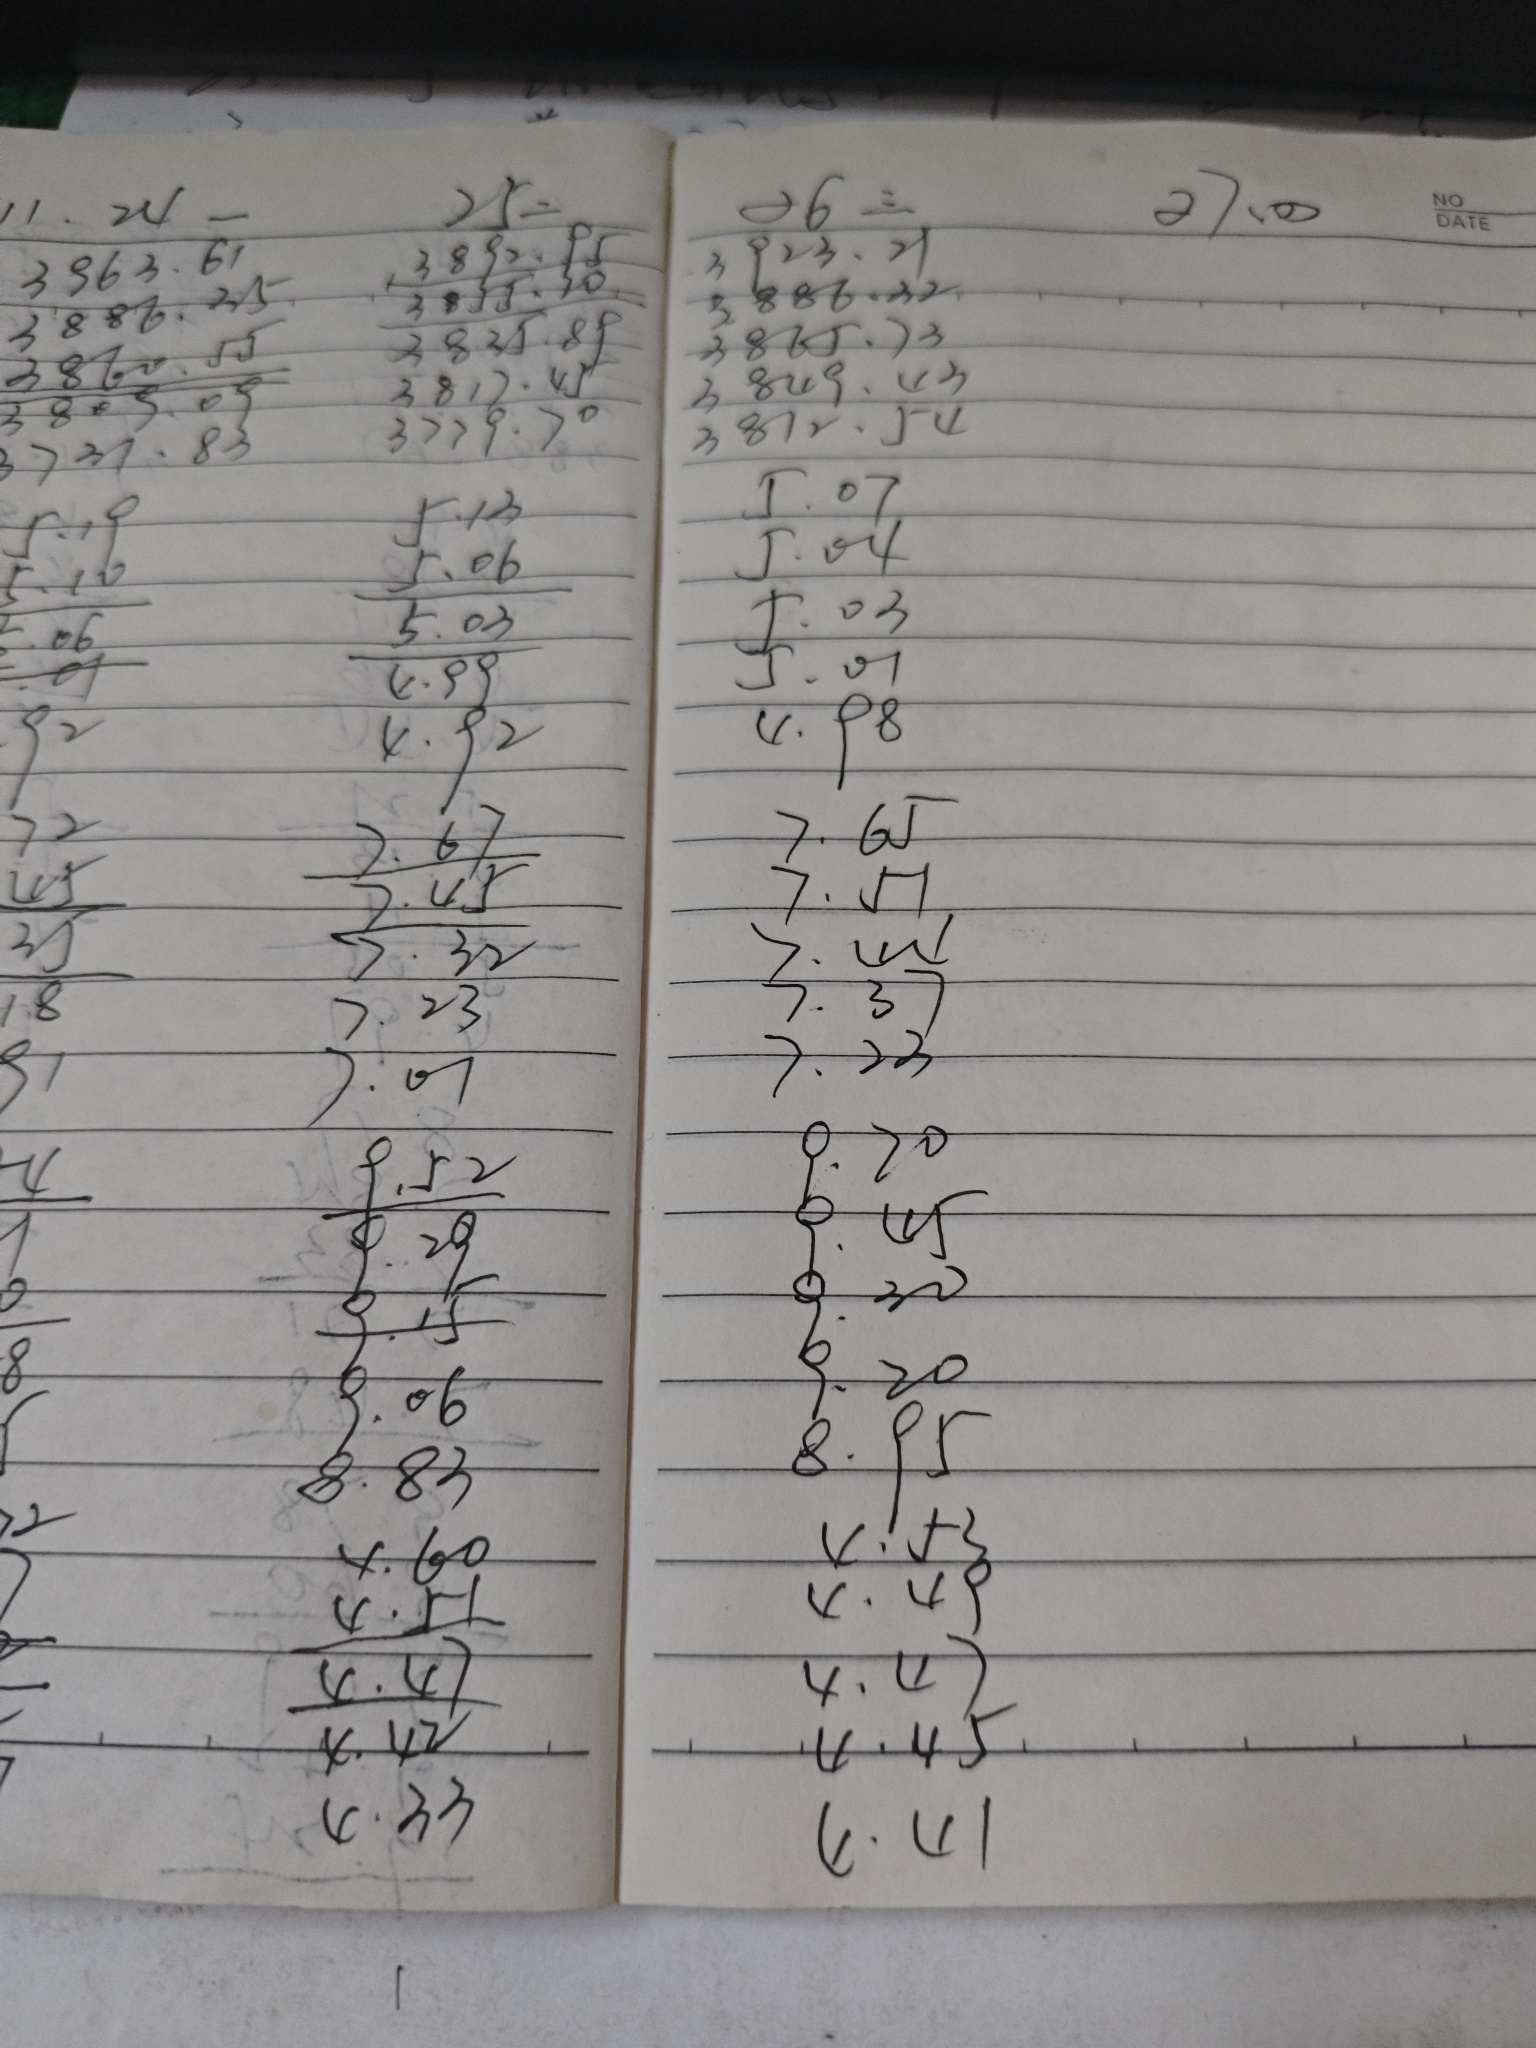 11.24 一
3963.61
3886.35
3860.55
3809.09
3731.83
5.19
5.10
5.06
5.01
.92
72
45
35
18
91
4
1
0
8
72
25 二
3892.95
3855.30
3835.89
3817.45
3779.70
5.13
5.06
5.03
4.99
4.92
7.67
7.45
7.32
7.23
7.01
9.52
9.29
9.15
9.06
8.83
4.60
4.51
4.47
4.42
4.33
26 三
3923.21
3886.32
3865.73
3849.43
3812.54
5.07
5.04
5.03
5.01
4.98
7.65
7.51
7.44
7.37
7.23
9.70
9.45
9.30
9.20
8.95
4.53
4.49
4.47
4.45
4.41
27
NO
DATE